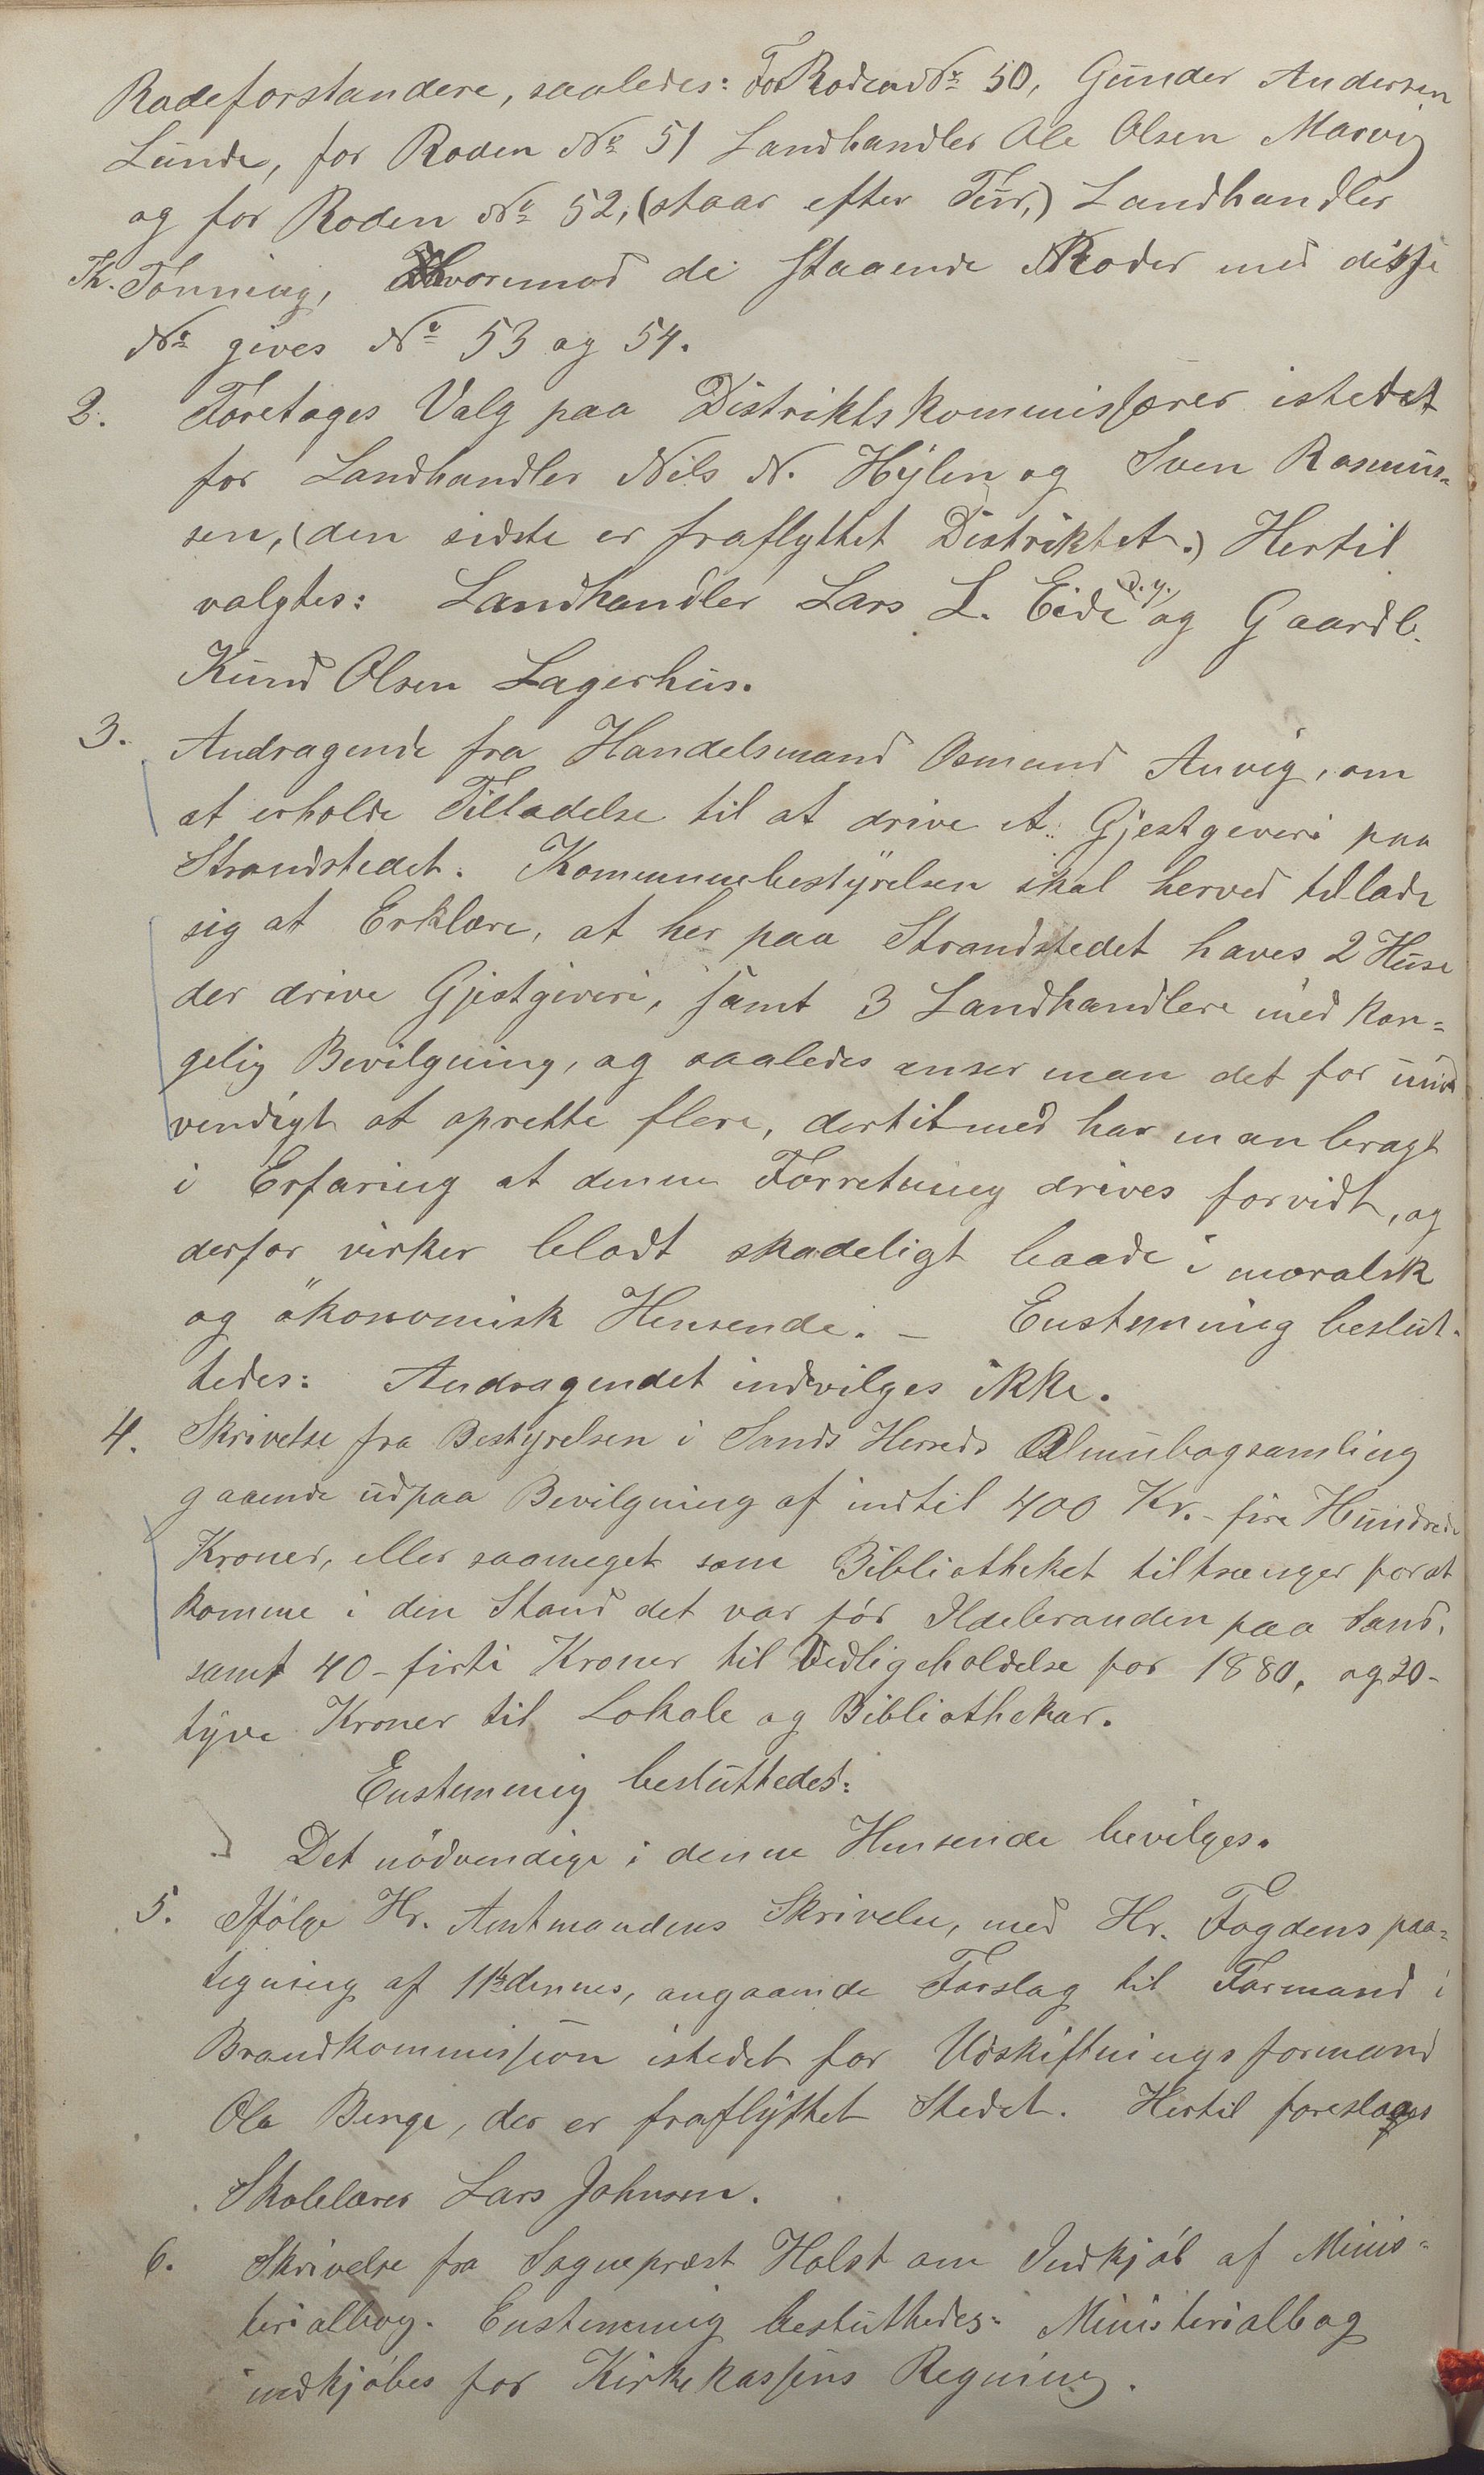 Rodeforstandere, saaledes: For Roden No 50, Gunder Andersen
Lunde, for Roden No 51 Landhandler Ole Olsen Marvig
og for Roden No 52, (staar efter Tur,) Landhandler
Th. Tønning, Hvorimod de staaende Roder med disse
No gives No 53 og 54.
2. Foretages Valg paa Distriktskommissærer istedet
for Landhandler Nils N. Hylen og Sven Rasmus-
sen, (den sidste er fraflyttet Distriktet.) Hertil
valgtes: Landhandler Lars L. Eide d.y. og Gaardb.
Knud Olsen Lagerhus.
3. Andragende fra Handelsmand Osmund Anvig, om
at erholde Tilladelse til at drive et Gjestgeveri paa
Strandstedet. Kommunebestyrelsen skal herved tillade
sig at Erklære, at her paa Strandstedet haves 2 Huse
der drive Gjestgiveri, samt 3 Landhandlere med kon-
gelig Bevilgning, og saaledes anser man det for unød
vendigt at oprette flere, dertilmed har man bragt
i Erfaring at denne Forretning drives forvidt, og
derfor virker blodt skadeligt baade i moralsk
og økonomisk Hensende. – Enstemmig beslut-
tedes: Andragendet indvilges ikke.
4. Skrivelse fra Bestyrelsen i Sands Herreds Almubogsamling
gaaende udpaa Bevilgning af indtil 400 Kr. - fire Hundrede
Kroner, eller saameget som Bibliotheket tiltrænger forat
komme i den Stand det var før Ildebranden paa Sand,
samt 40 - firti Kroner til Vedligeholdelse for 1880, og 20 -
tyve Kroner til Lokale og Bibliothekar.
Enstemmig besluttedes:
Det nödvendige i denne Hensende bevilges.
5. Ifölge Hr. Amtmandens Skrivelse, med Hr. Fogdens paa-
tegning af 11te dennes, angaaende Forslag til Formand i
Brandkommission istedet for Udskiftningsformand
Ole Benge, der er fraflyttet Stedet. Hertil foreslaaes
Skolelærer Lars Johnsen.
6. Skrivelse fra Sognepræst Holst om Indkjøb af Minis-
terialbog. Enstemmig besluttedes: Ministerialbog
indkjøbes for Kirkekassens Regning.